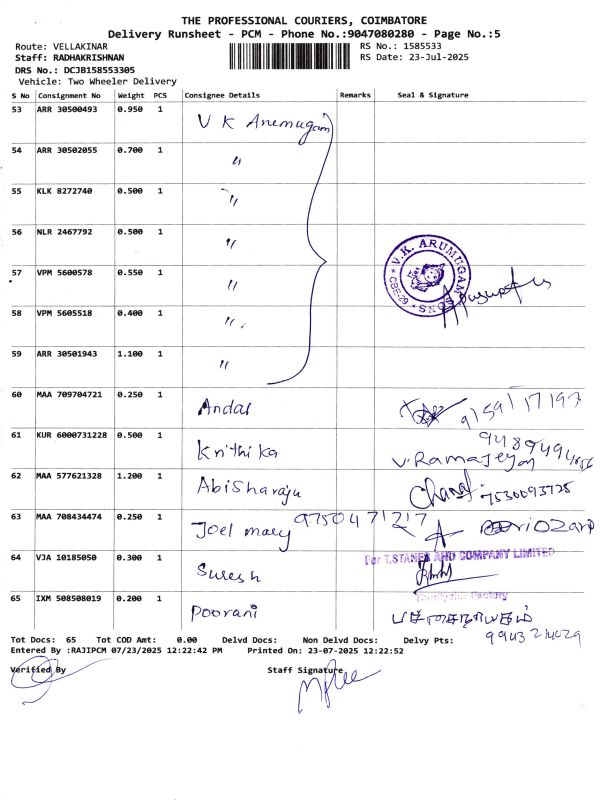 THE PROFESSIONAL COURIERS, COIMBATORE
Delivery Runsheet - PCM - Phone No.:9047080280 - Page No.:5
Route: VELLAKINAR
RS No.: 1585533
Staff: RADHAKRISHNAN
RS Date: 23-Jul-2025
DRS No.: DCJB158553305
Vehicle: Two Wheeler Delivery
S No Consignment No Weight PCS Consignee Details Remarks Seal & Signature
53 ARR 30500493 0.950 1 V K Anemugam
54 ARR 30502055 0.700 1 "
55 KLK 8272740 0.500 1 "
56 NLR 2467792 0.500 1 "
V.K. ARUMUGAM SONS CBE-29
57 VPM 5600578 0.550 1 "
58 VPM 5605518 0.400 1 "
59 ARR 30501943 1.100 1 "
60 MAA 709704721 0.250 1 Andal
61 KUR 6000731228 0.500 1 Krithika V.Ramajeyam
62 MAA 577621328 1.200 1 Abisharaju 7530093728
63 MAA 708434474 0.250 1 Joel mary 9750471217
64 VJA 10185050 0.300 1 Suresh For T.STANES AND COMPANY LIMITED
65 IXM 508508019 0.200 1 Poorani
Tot Docs: 65 Tot COD Amt: 0.00 Delvd Docs: Non Delvd Docs: Delvy Pts:
Entered By :RAJIPCM 07/23/2025 12:22:42 PM Printed On: 23-07-2025 12:22:52
Verified By Staff Signature